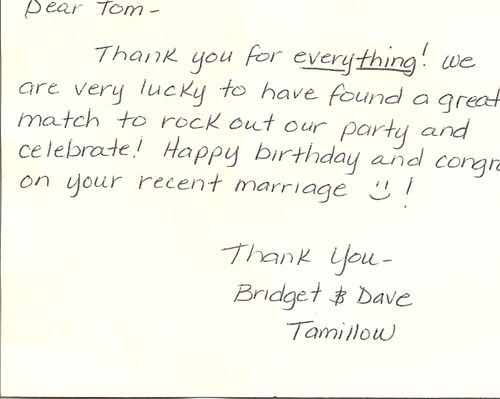 Dear Tom-
Thank you for everything! We
are very lucky to have found a great
match to rock out our party and
celebrate! Happy birthday and congra
on your recent marriage :)!
Thank You-
Bridget & Dave
Tamillow